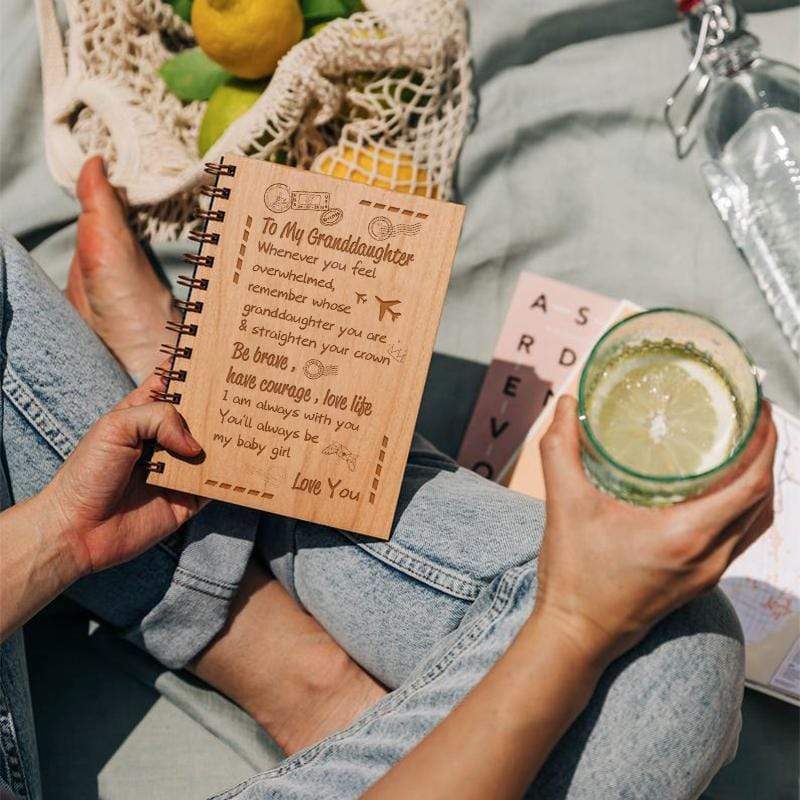 To My Granddaughter
Whenever you feel
overwhelmed,
remember whose
granddaughter you are
& straighten your crown
Be brave,
have courage, love life
I am always with you
You'll always be
my baby girl
Love You
A S
R D
E
V
O